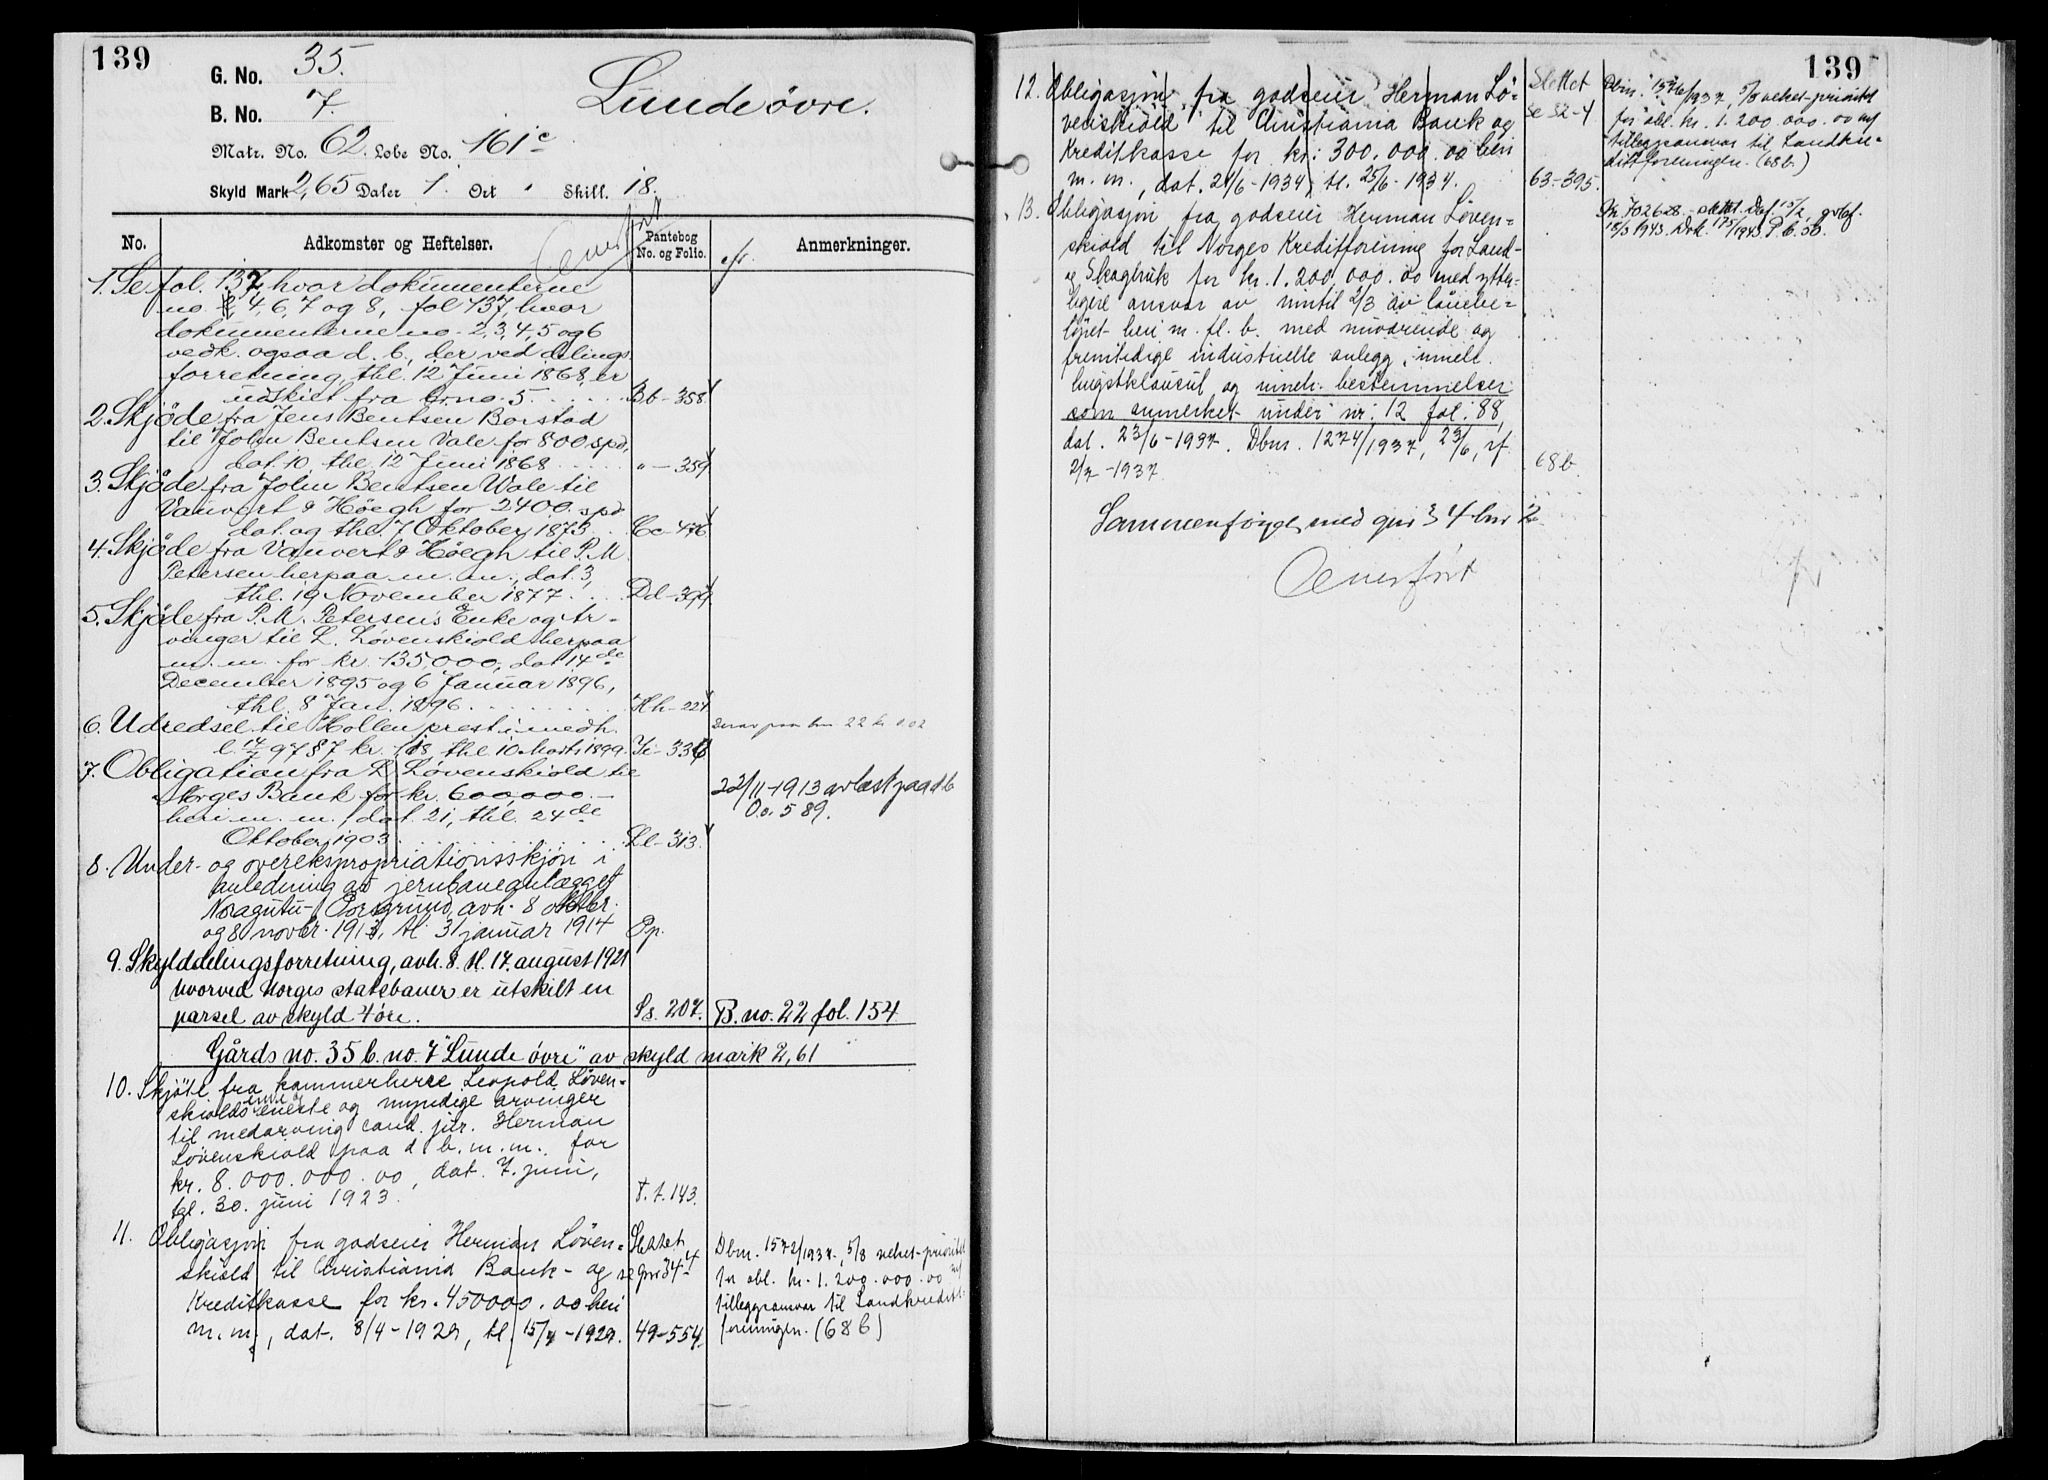 139
G. No. 35.
Lunde övre.
B. No. 7.
Matr. No. 62. Løbe No. 161 c
Skyld Mark 2,65 Daler 1. Ort " Skill. 18.
Overført
No. Adkomster og Heftelser. Pantebog No. og Folio. Anmerkninger.
1. Se fol. 137, hvor dokumenterne
no. 4, 6, 7 og 8, fol 137, hvor
dokumenterne no. 2, 3, 4, 5 og 6
vedk. ogsaa d. b., der ved delings-
forretning, thl. 12 Juni 1868, er
udskilt fra Brno. 5. Bb - 358
2. Skjöde fra Jens Bentsen Borstad
til John Bentsen Vale for 800 spd,
dat. 10, thl. 12 Juni 1868 " - 359
3. Skjöde fra John Bentsen Vale til
Vauvert & Höegh for 2400 spd
dat. og thl. 7 Oktober 1873 Cc - 476
4. Skjöde fra Vauvert & Höegh til P. M.
Petersen herpaa m. m., dat. 3,
thl. 19 November 1877 Dd - 399
5. Skjöde fra P. M. Petersens Enke og Ar-
vinger til L. Løvenskiold herpaa
m. m. for kr. 135,000, dat 14de
December 1895 og 6 Januar 1896,
thl. 8 Jan. 1896 Hh - 224
6. Udredsel til Hollen prest i medh.
l. 14/7 97 87 kr. /18, thl 10 Marts 1899. Ii - 336
Derav paa bno 22 kr 0.02
7. Obligation fra L. Løvenskiold til
Norges Bank for kr. 600,000.-
heri m. m., dat. 21, thl. 24de
Oktober 1903 Ll - 313.
22/11-1913 avlæst paa d b
Oo. 589.
8. Under- og overekspropriationsskjøn i
anledning av jernbaneanlægget
Nordagutu - Porsgrund, avh. 8 oktbr.
og 8 novbr. 1913, tl. 31 januar 1914 Pp.
9. Skylddelingsforretning, avh. 8. tl. 17. august 1921
hvorved Norges statsbaner er utskilt en
parsel av skyld 4 øre. Ss. 207. B. no. 22 fol. 154
Gårds no. 35 b. no. 7 "Lunde övre" av skyld mark 2,61
10. Skjöte fra kammerherre Leopold Löven-
skiolds eneste og myndige arvinger
til medarving cand. jur. Herman
Lövenskiold paa d. b. m. m. for
kr. 8.000.000.00, dat. 7. juni,
tgl. 30. juni 1923. T. t. 143.
11. Obligasjon fra godseier Herman Löven-
skiold til Christiania Bank- og
Kreditkasse for kr. 450000.00 heri
m. m., dat. 8/4-1929, tl 15/4-1929. 49-554.
Slettet
se gnr 34-4
Dbnr. 1572/1937, 5/8 veket prioritet
for obl. kr. 1.200.000.00 m/
tilleggsansvar til Landkreditt-
foreningen. (68 b)
139
12. Obligasjon fra godseier Herman Lö-
venskiold til Christiania Bank og
Kreditkasse for kr: 300.000.00 heri
m. m., dat. 21/6-1934, tl. 25/6-1934. 63-395.
Slettet
se 32-4
Dbnr. 1576/1937, 5/8 veket prioritet
for obl. kr. 1.200.000.00 m/
tilleggsansvar til Landkre-
dittforeningen. (68 b.)
13. Obligasjon fra godseier Herman Löven-
skiold til Norges Kreditforening for Land-
og Skogbruk for kr. 1.200.000.00 med ytter-
ligere ansvar av inntil 2/3 av lånebe-
löpet heri m. fl. b. med nuværende og
fremtidige industrielle anlegg,
og bestemmelser
som anmerket under nr: 12 fol. 88,
dat. 23/6-1937. Dbnr. 1274/1937, 23/6, rf.
2/7-1937. 68 b.
Kr. 702628.- slettet. Daf 15/2, gvlgf.
18/3 1943. Dok. 175/1943. P. b. 56.
Sammenføyet med gnr 34 bnr 2
Overfört